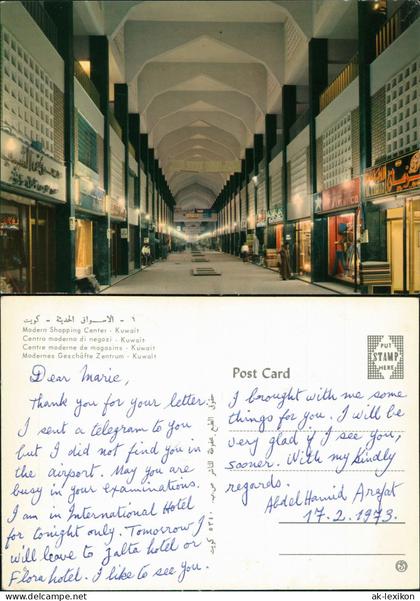 ١ - الاسواق الحديثة - كويت
Modern Shopping Center - Kuwait
Centro moderno di negozi - Kuwait
Centre moderne de magasins - Kuwait
Modernes Geschäfte Zentrum - Kuwait
Dear Marie,
Thank you for your letter.
I sent a telegram to you
but I did not find you in
the airport. May you are
busy in your examinations.
I am in International Hotel
for tonight only. Tomorrow I
will leave to Zalta hotel or
Flora hotel. I like to see you.
Post Card
PUT
STAMP
HERE
I brought with me some
things for you. I will be
very glad if I see you,
sooner. With my kindly
regards.
Abdel Hamid Arafat
17.2.1973.
© ak-lexikon
www.ak-lexikon.com